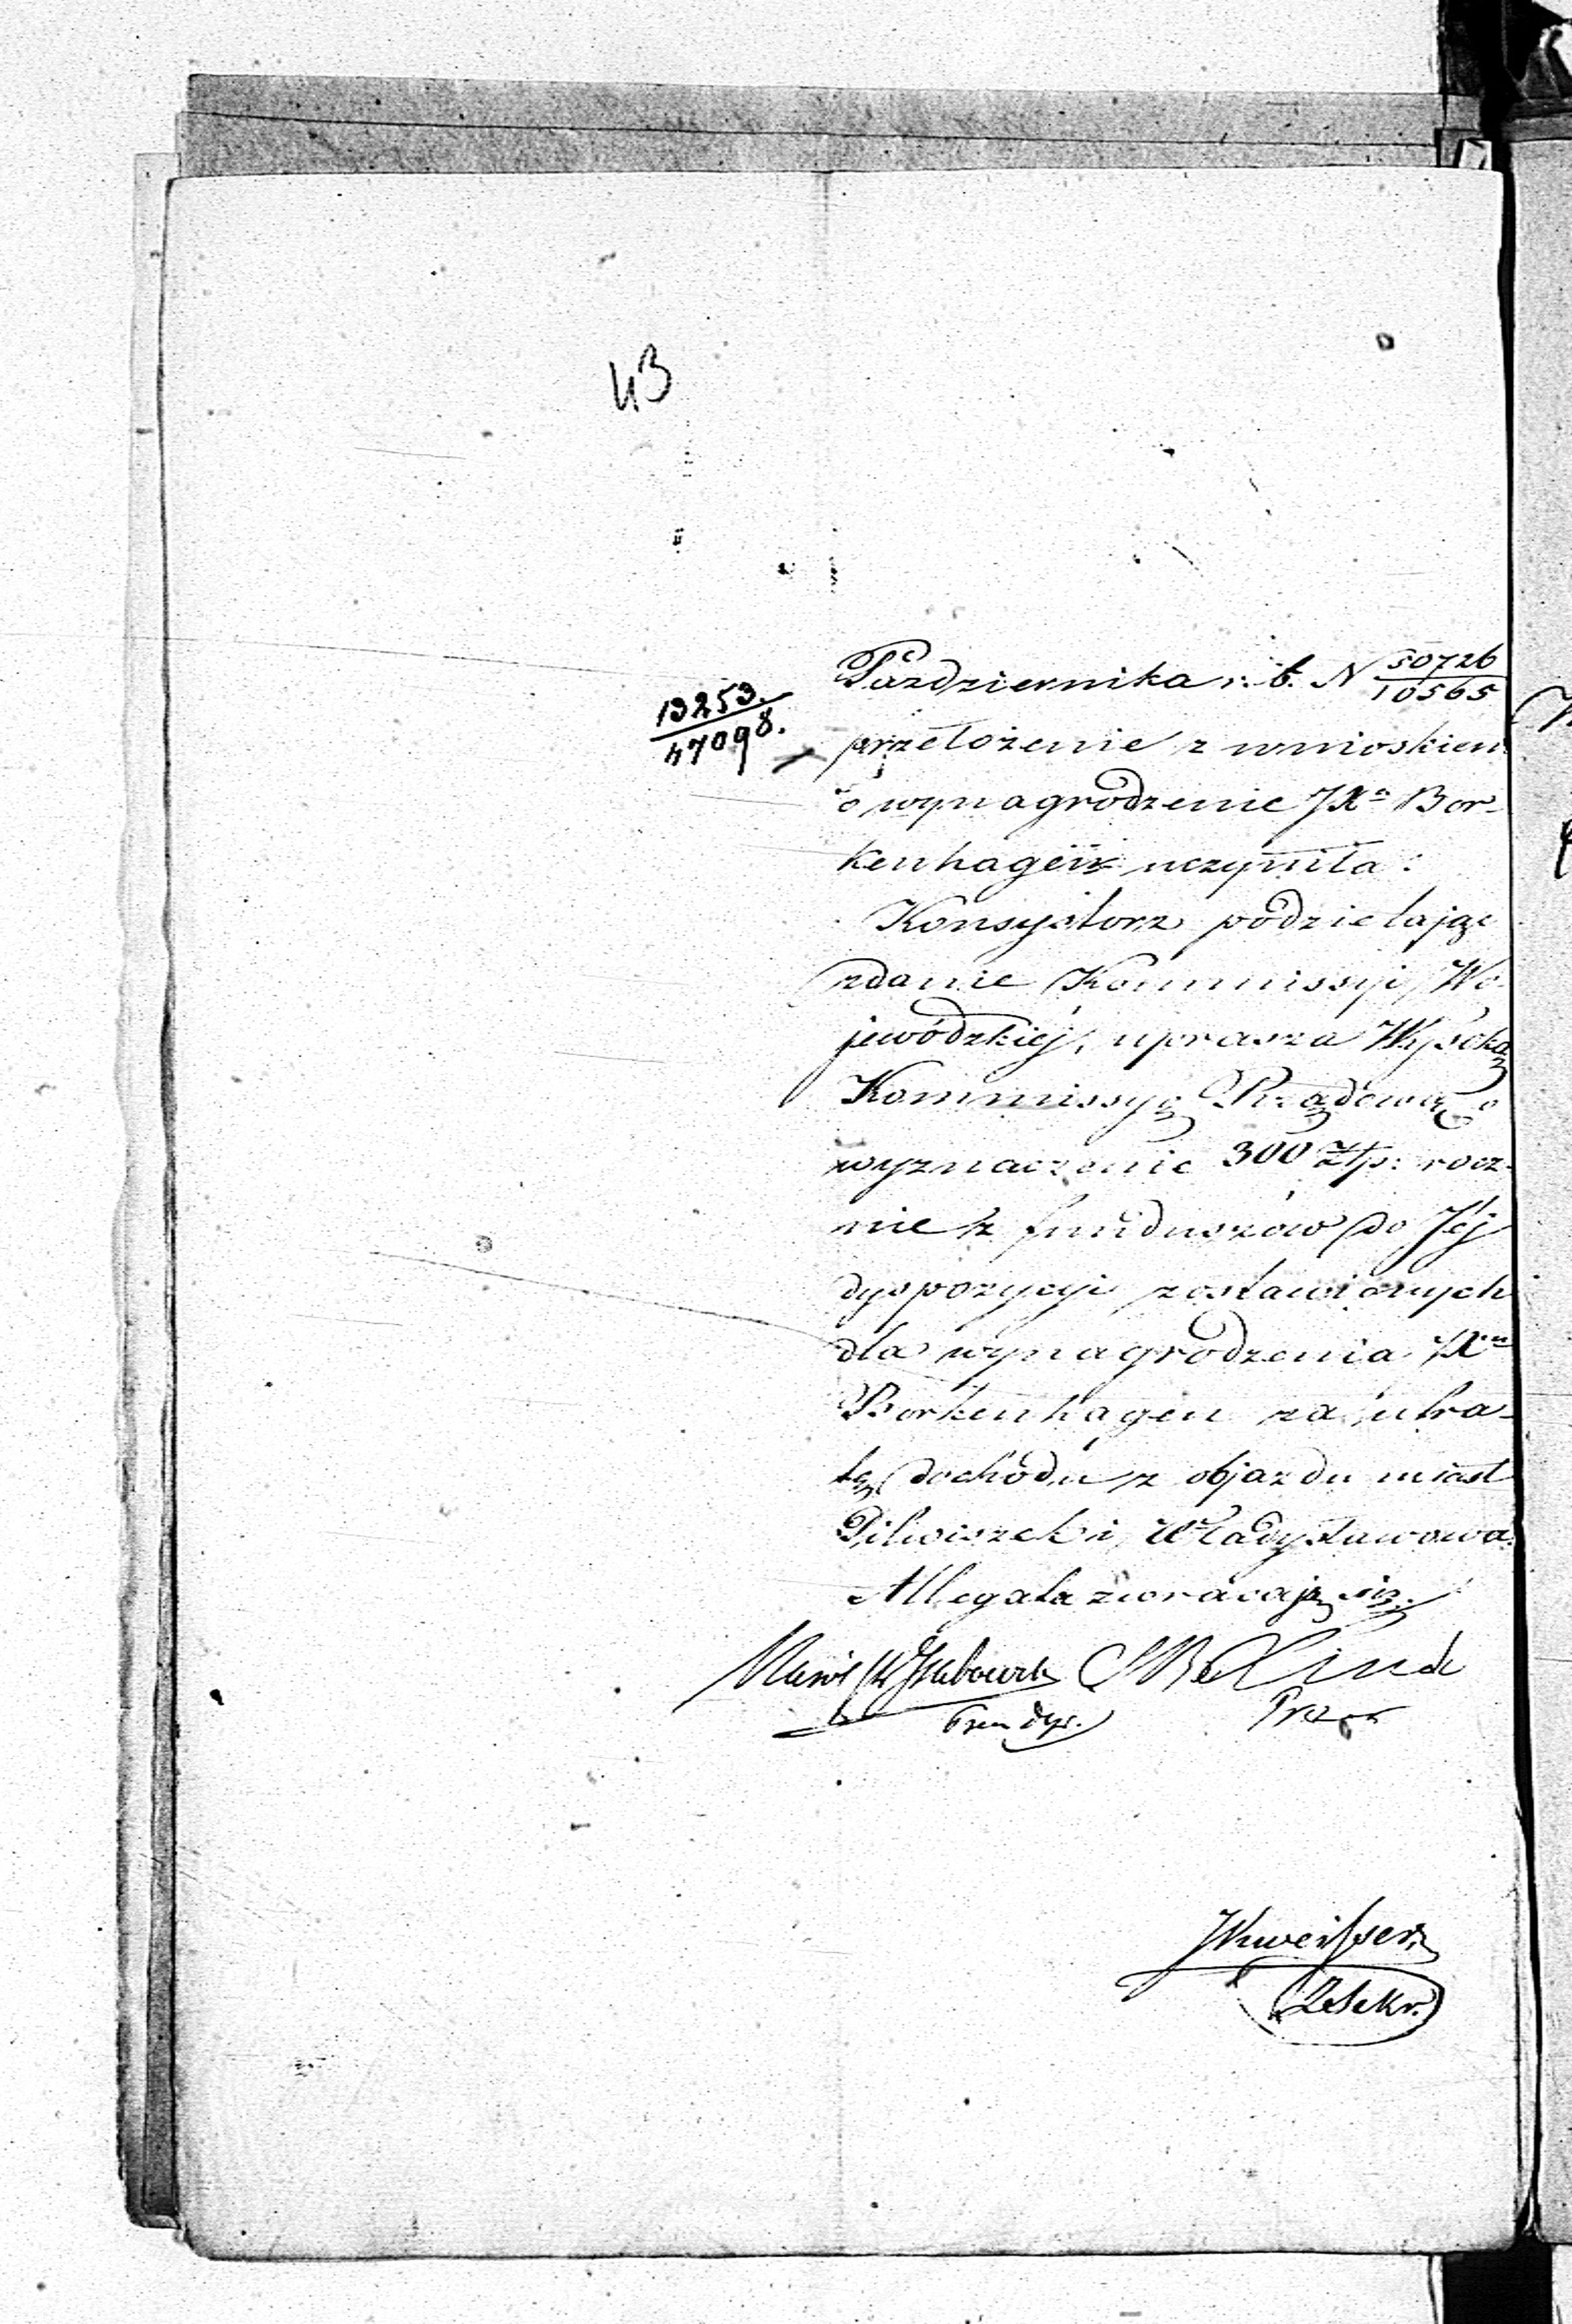 43
Października r. b. N 50726/10565
13253./47098.
przełożenie z wnioskiem
o wynagrodzenie JXa Bor-
kenhagen uczyniła:
Konsystorz podzielając
zdanie Kommissyi Wo-
jewódzkiéj, uprasza Wysoką
Kommissyę Rządową o
wyznaczenie 300 Złp: rocz-
nie z funduszów do Jéj
dyspozycyi zostawionych
dla wynagrodzenia JXa
Borkenhagen za utra-
tę dochodu z objazdu miast
Pilwiszek i Władysławowa.
Allegata zwracają się.
Linde
Prezes
Sekr.